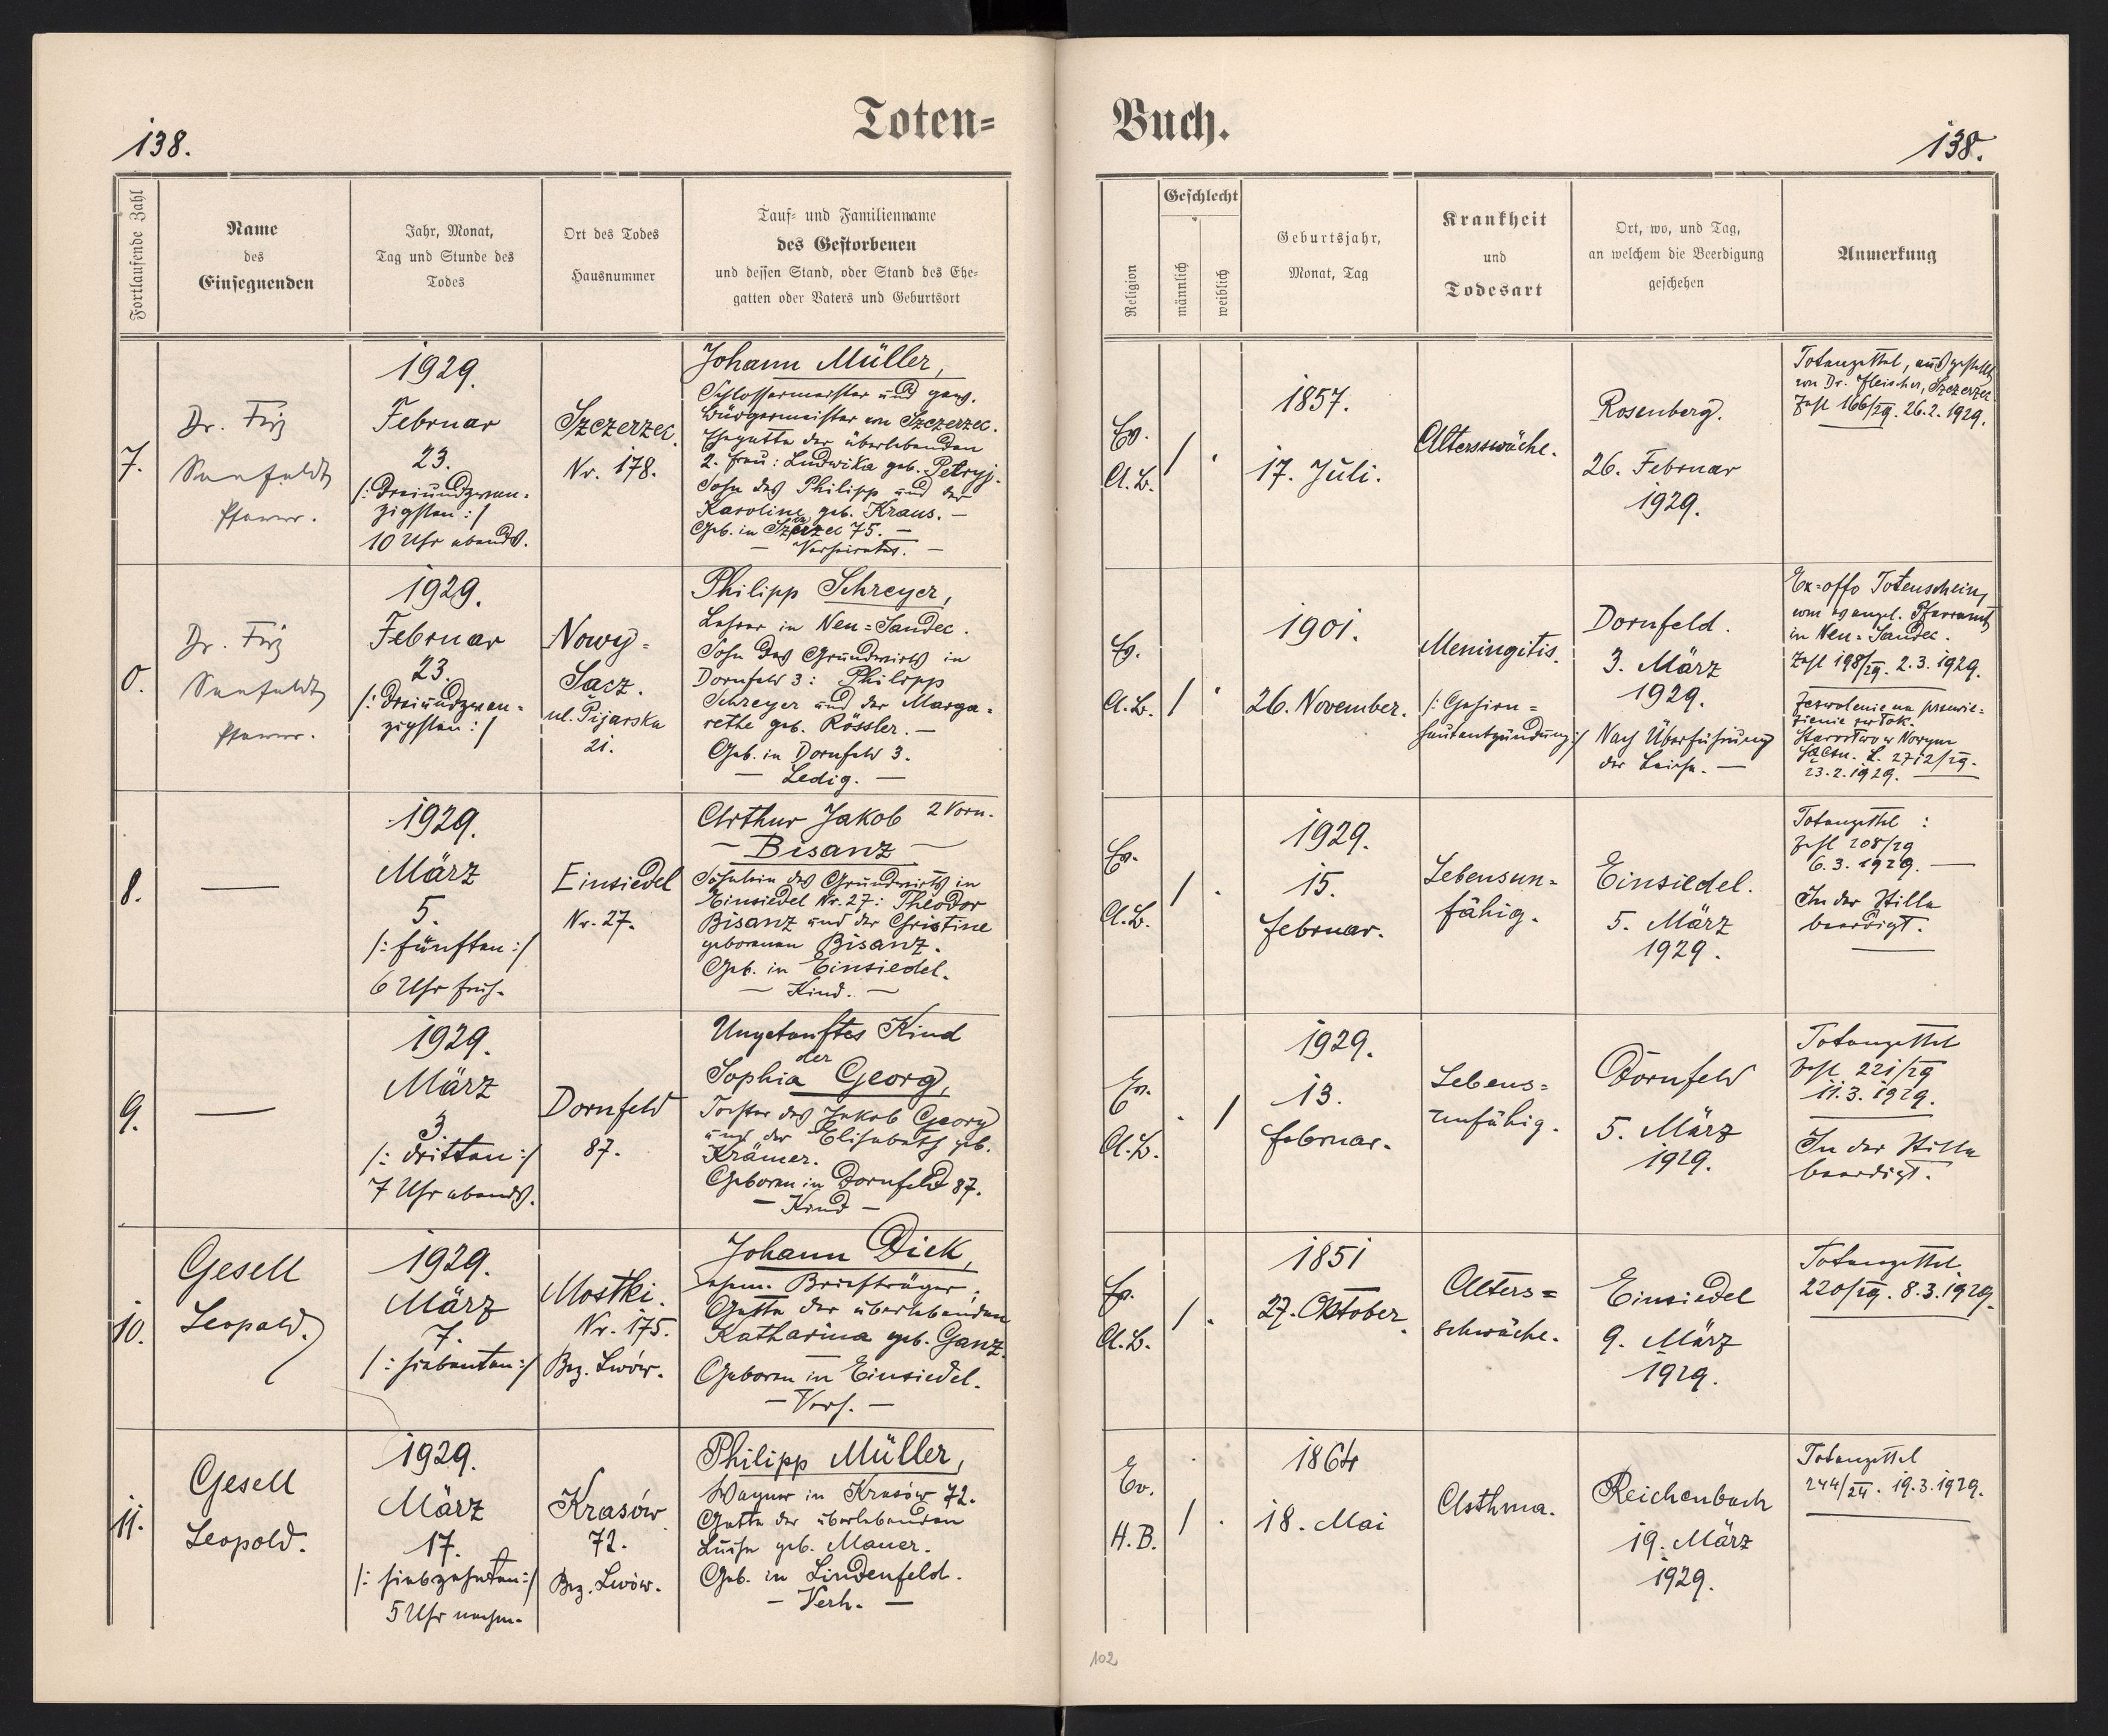 Toten=
Buch.
138.
138.
Fortlaufende Zahl
Name
des
Einsegnenden
Jahr, Monat,
Tag und Stunde des
Todes
Ort des Todes
Hausnummer
Tauf= und Familienname
des Gestorbenen
und dessen Stand, oder Stand des Ehe=
gatten oder Vaters und Geburtsort
Religion
Geschlecht
männlich
weiblich
Geburtsjahr,
Monat, Tag
Krankheit
und
Todesart
Ort, wo, und Tag,
an welchem die Beerdigung
geschehen
Anmerkung
7.
Dr. Fritz
Seefeldt
Pfarrer.
1929.
Februar
23.
/: Dreiundzwan-
zigsten :/
10 Uhr abends.
Szczerzec.
Nr. 178.
Johann Müller,
Schlossermeister und gew.
Bürgermeister von Szczerzec.
Ehegatte der überlebenden
2. Frau: Ludwika geb. Petryj.
Sohn des Philipp und der
Karoline geb. Kraus. —
Geb. in Szczerzec 75. —
— Verheiratet. —
Ev.
A.B.
/
.
1857.
17. Juli.
Alterswäche.
Rosenberg.
26. Februar
1929.
Totenzettel, ausgestellt
von Dr. Fleischer, Szczerzec
Zahl 166/29. 26.2.1929.
0.
Dr. Fritz
Seefeldt
Pfarrer.
1929.
Februar
23.
/: Dreiundzwan-
zigsten :/
Nowy-
Sącz.
ul. Pijarska
21.
Philipp Schreyer,
Lehrer in Neu=Sandec.
Sohn des Grundwirts in
Dornfeld 3: Philipp
Schreyer und der Marga-
rethe geb. Rössler. —
Geb. in Dornfeld 3.
— Ledig. —
Ev.
A.B.
/
.
1901.
26. November.
Meningitis.
/: Gehirn=
hautentzündung :/
Dornfeld.
3. März
1929.
Nach Überführung
der Leiche. —
Ex=offo Totenschein
vom evangel. Pfarramt
in Neu-Sandec.
Zahl 198/29. 2.3.1929.
Zezwolenie na przewie-
zienie zwłok.
Starostwo w Nowym
Sączu. L. 2712/29.
23.2.1929. —
8.
—
1929.
März
5.
/: fünften :/
6 Uhr früh.
Einsiedel
Nr. 27.
Arthur Jakob 2 Vorn.
— Bisanz —
Söhnlein des Grundwirts in
Einsiedel Nr. 27: Theodor
Bisanz und der Christine
geborenen Bisanz.
Geb. in Einsiedel.
— Kind. —
Ev.
A.B.
/
.
1929.
15.
Februar.
Lebensun-
fähig.
Einsiedel.
5. März
1929.
Totenzettel :
Zahl 208/29
6.3.1929. —
In der Stille
beerdigt.
9.
—
1929.
März
3.
/: dritten :/
7 Uhr abends.
Dornfeld
87.
Ungetauftes Kind
der
Sophia Georg,
Tochter des Jakob Georg
und der Elisabeth geb.
Krämer.
Geboren in Dornfeld 87.
— Kind —
Ev.
A.B.
.
/
1929.
13.
Februar.
Lebens=
unfähig.
Dornfeld
5. März
1929.
Totenzettel
Zahl 221/29
11.3.1929.
In der Stille
beerdigt.
10.
Gesell
Leopold.
1929.
März
7.
/: siebenten :/
Mostki.
Nr. 175.
Bez. Lwów.
Johann Dick,
ehem. Briefträger.
Gatte der überlebenden
Katharina geb. Ganz.
Geboren in Einsiedel.
— Verh. —
Ev.
A.B.
/
.
1851
27. Oktober.
Alters=
schwäche.
Einsiedel
9. März
1929.
Totenzettel
220/29. 8.3.1929.
11.
Gesell
Leopold.
1929.
März
17.
/: siebzehnten :/
5 Uhr nachm.
Krasów
72.
Bez. Lwów.
Philipp Müller,
Wagner in Krasów 72.
Gatte der überlebenden
Luise geb. Mauer.
Geb. in Lindenfeld.
— Verh. —
Ev.
H.B.
/
.
1864
18. Mai
Asthma.
Reichenbach
19. März
1929.
Totenzettel
244/29. 19.3.1929.
102